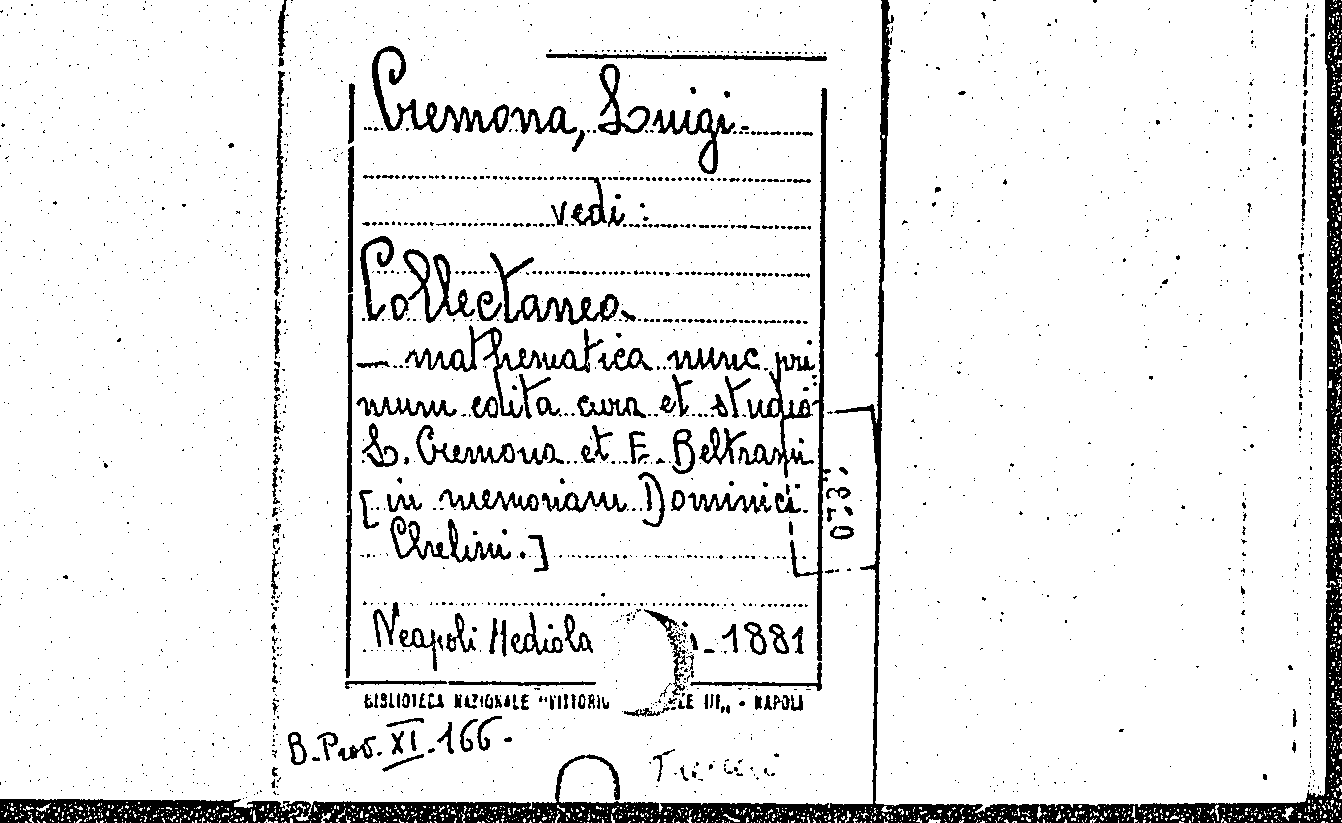 Cremona, Luigi.
vedi:
Collectanea
— mathematica nunc pri
mum edita cura et studio
L. Cremona et E. Beltrami
[in memoriam Dominici
Chelini.]
Neapoli Mediola 1881
BIBLIOTECA NAZIONALE "VITTORIO LE III„ - NAPOLI
B. Prov. XI. 166.